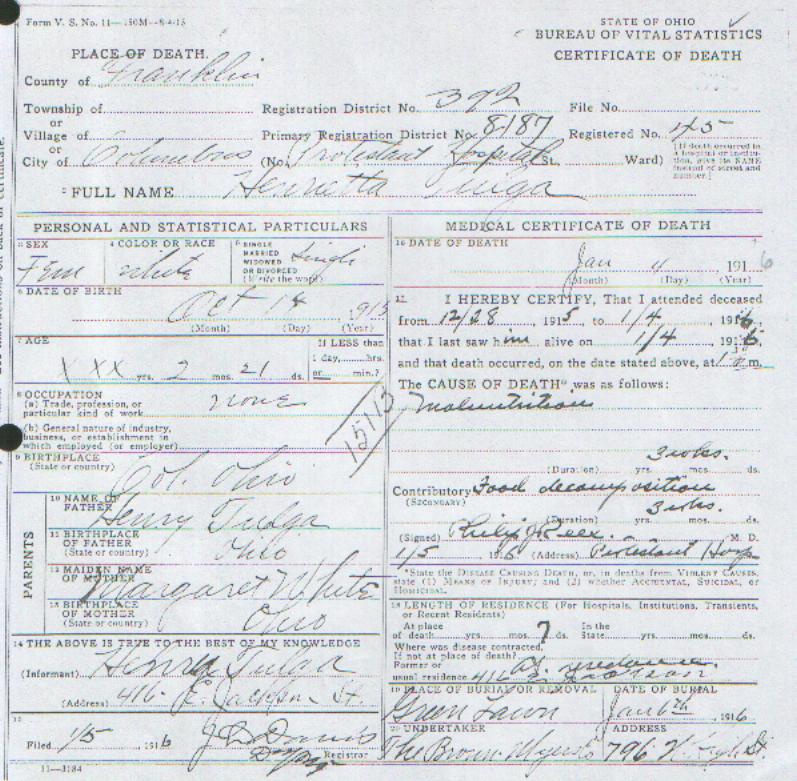 Form V. S. No. 11—150M—8-4-15
STATE OF OHIO
BUREAU OF VITAL STATISTICS
CERTIFICATE OF DEATH
PLACE OF DEATH.
County of Franklin
Township of
or
Village of
or
City of Columbus
Registration District No. 392 File No.
Primary Registration District No. 8187 Registered No. 45
(No. Protestant Hospital St. Ward)
[If death occurred in a hospital or institution, give its NAME instead of street and number.]
2 FULL NAME Henrietta Tulga
PERSONAL AND STATISTICAL PARTICULARS
3 SEX Fem
4 COLOR OR RACE White
5 SINGLE MARRIED WIDOWED OR DIVORCED (Write the word) Single
6 DATE OF BIRTH Oct 14 1915
(Month) (Day) (Year)
7 AGE
XXX yrs. 2 mos. 21 ds.
If LESS than 1 day, hrs. or min.?
8 OCCUPATION
(a) Trade, profession, or particular kind of work none
(b) General nature of industry, business, or establishment in which employed (or employer)
15113
9 BIRTHPLACE (State or country) Col. Ohio
PARENTS
10 NAME OF FATHER Henry Tulga
11 BIRTHPLACE OF FATHER (State or country) Ohio
12 MAIDEN NAME OF MOTHER Margaret White
13 BIRTHPLACE OF MOTHER (State or country) Ohio
14 THE ABOVE IS TRUE TO THE BEST OF MY KNOWLEDGE
(Informant) Henry Tulga
(Address) 416 E. Jackson St.
15
Filed 1/5 1916
Registrar
11—3184
MEDICAL CERTIFICATE OF DEATH
16 DATE OF DEATH
Jan 4 1916
(Month) (Day) (Year)
17 I HEREBY CERTIFY, That I attended deceased
from 12/28 1915, to 1/4, 1916,
that I last saw him alive on 1/4, 1916,
and that death occurred, on the date stated above, at m.
The CAUSE OF DEATH* was as follows:
Malnutrition
3 wks.
(Duration) yrs. mos. ds.
Contributory Food decomposition
(SECONDARY)
3 wks.
(Duration) yrs. mos. ds.
(Signed) Philip J. Reel M. D.
1/5 1916 (Address) Protestant Hosp
*State the DISEASE CAUSING DEATH, or, in deaths from VIOLENT CAUSES, state (1) MEANS OF INJURY; and (2) whether ACCIDENTAL, SUICIDAL, or HOMICIDAL.
18 LENGTH OF RESIDENCE (For Hospitals, Institutions, Transients, or Recent Residents)
At place of death yrs. mos. 7 ds. In the State yrs. mos. ds.
Where was disease contracted,
If not at place of death? At residence
Former or usual residence 416 E Jackson
19 PLACE OF BURIAL OR REMOVAL Green Lawn
DATE OF BURIAL Jan 6th, 1916
20 UNDERTAKER
ADDRESS